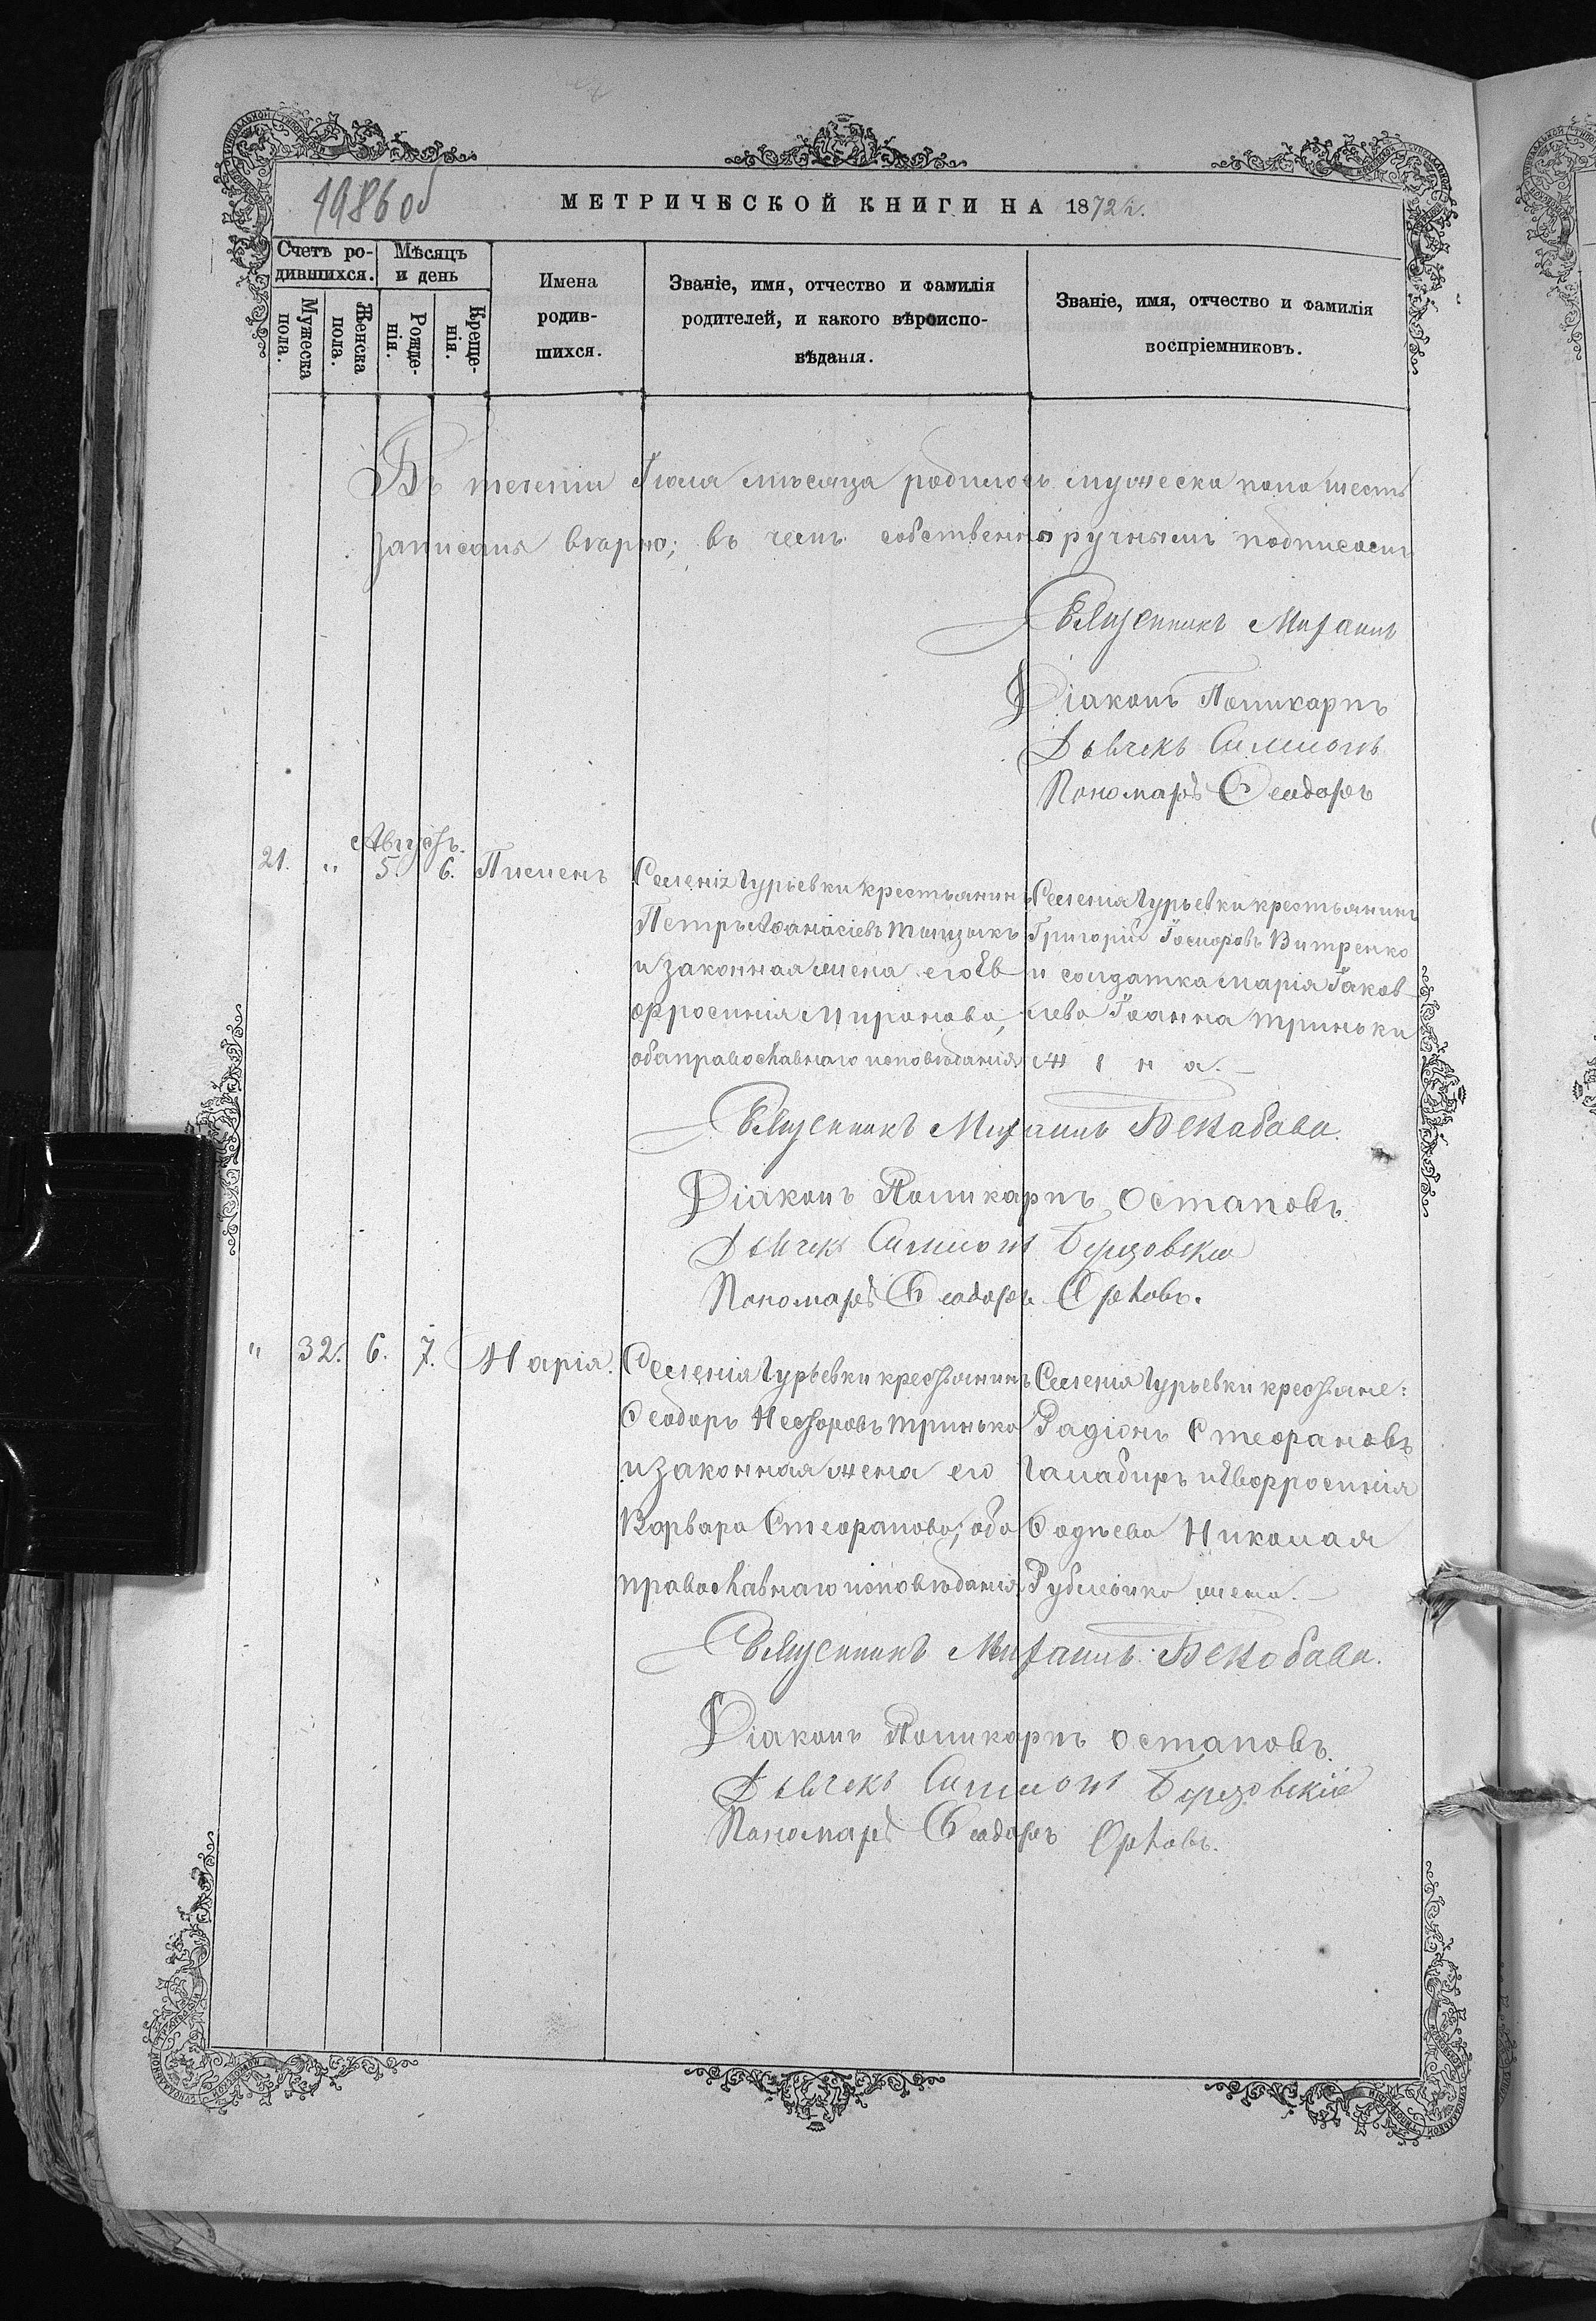 1986 об
МЕТРИЧЕСКОЙ КНИГИ НА 1872 г.
Счетъ ро-
дившихся.
Мѣсяцъ
и день
Мужеска
пола.
Женска
пола.
Рожде-
нія.
Креще-
нія.
Имена
родив-
шихся.
Званіе, имя, отчество и фамилія
родителей, и какого вѣроиспо-
вѣданія.
Званіе, имя, отчество и фамилія
воспріемниковъ.
Въ теченіи Іюля мѣсяца родилось мужеска пола шесть
записаны вѣрно; въ чемъ собственноручнымъ подписомъ
Священникъ Михаилъ
Діаконъ Поликарпъ
Дьячекъ Симеонъ
Пономарь Ѳеодоръ
Августъ.
21. " 5. 6. Пименъ
Селенія Гурьевки крестьянинъ
Петръ Аѳанасіевъ
и законная жена его Ев-
фросинія Миронова,
оба православнаго исповѣданія
Селенія Гурьевки крестьянинъ
Григорій Іосифовъ Витренко
и солдатка Марія Іаков-
лева Іоанна Триньки
жена.
Священникъ Михаилъ
Діаконъ Поликарпъ Остаповъ.
Дьячекъ Симеонъ Березовскій
Пономарь Ѳеодоръ Орловъ.
" 32. 6. 7. Марія.
Селенія Гурьевки крестьянинъ
Ѳеодоръ Несторовъ Тринько
и законная жена его
Варвара Стефанова; оба
православнаго исповѣданія
Селенія Гурьевки крестьяне:
Радіонъ Стефановъ
Галабиръ и Евфросинія
Николая
жена.
Священникъ Михаилъ
Діаконъ Поликарпъ Остаповъ.
Дьячекъ Симеонъ Березовскій
Пономарь Ѳеодоръ Орловъ.